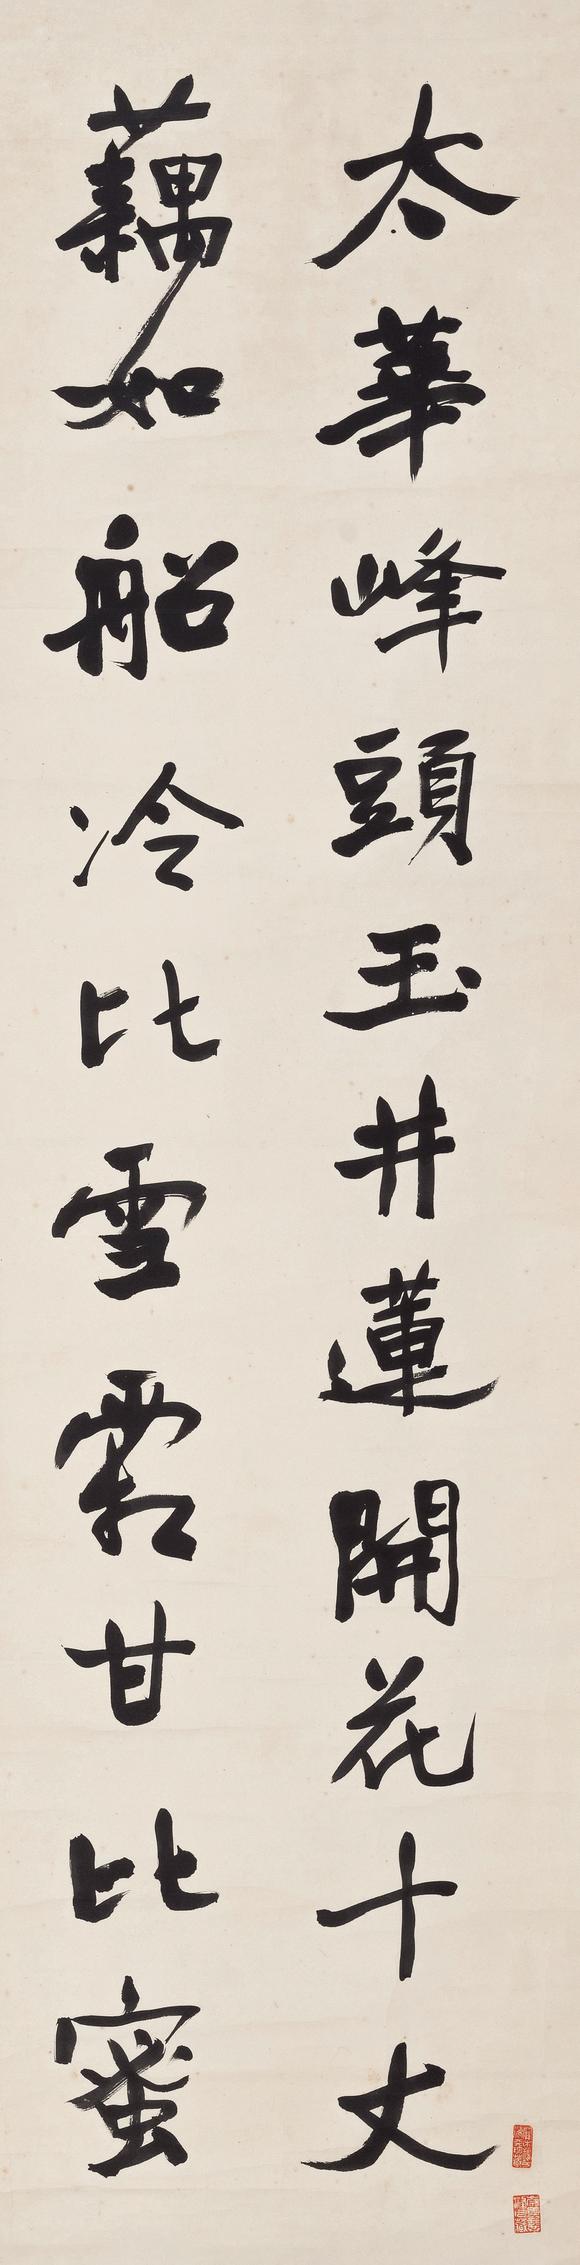 太華峰頭玉井蓮開花十丈
藕如船冷比雪霜甘比蜜